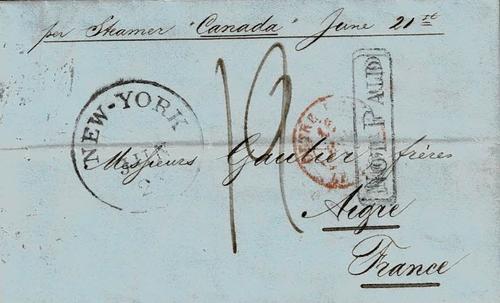 per Steamer "Canada" June 21st
NEW-YORK
NOT PAID
Messieurs Gautier frères
Aigre
France